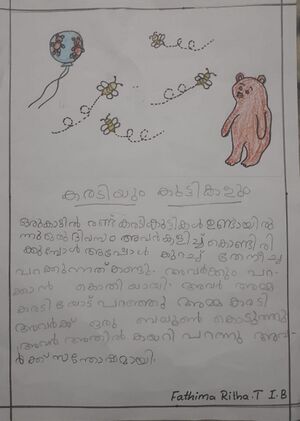 കരടിയും കുട്ടികളും
ഒരുകാട്ടിൽ രണ്ട് കരടികുട്ടികൾ ഉണ്ടായിരു
ന്നു ഒരു ദിവസം അവർ കളിച്ച് കൊണ്ടിരി
ക്കുമ്പോൾ അപ്പോൾ കുറച്ച് തേനീച്ച
പറക്കുന്നത് കണ്ടു. അവർക്കും പറ-
ക്കാൻ കൊതിയായി. അവർ അമ്മ
കരടിയോട് പറഞ്ഞു അമ്മ കരടി
അവർക്ക് ഒരു ബലൂൺ കൊടുത്തു
അവർ അതിൽ കയറി പറന്നു അവ-
ർക്ക് സന്തോഷമായി.
Fathima Ritha.T I.B